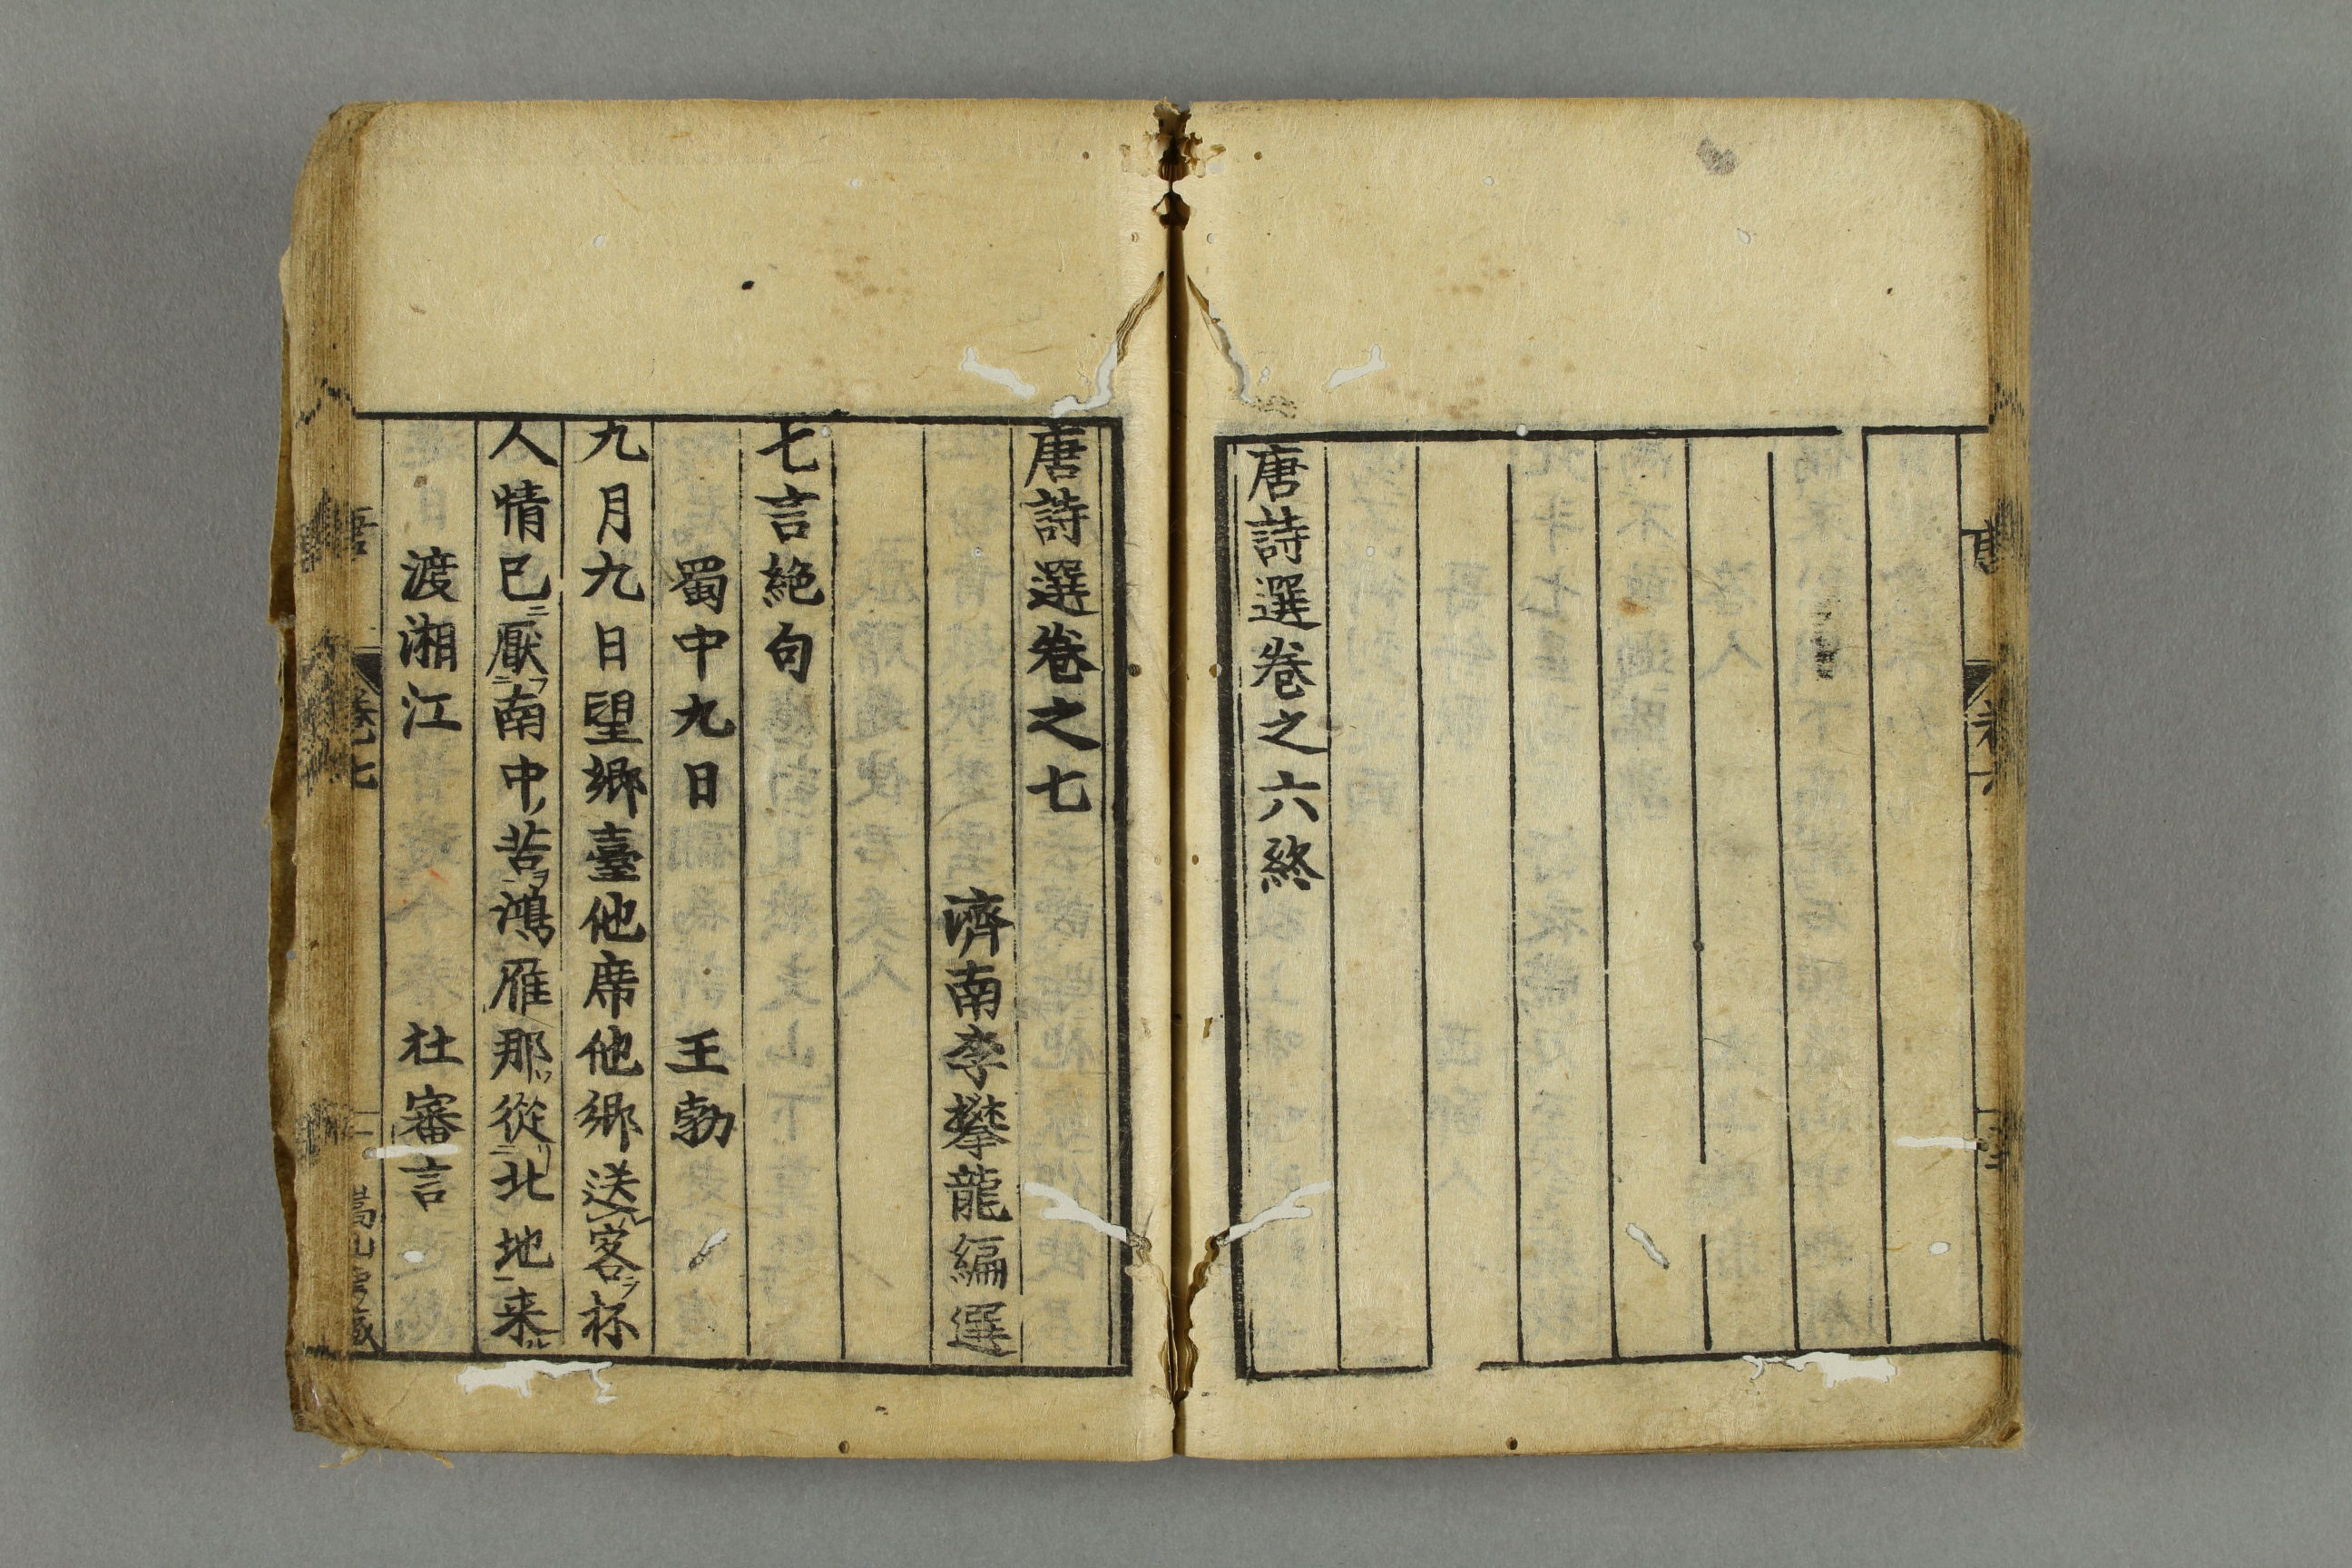 唐詩選卷之六終
唐詩選卷之七
濟南李攀龍編選
七言絶句
蜀中九日 王勃
九月九日望鄉臺他席他鄉送客杯
人情已厭南中苦鴻雁那從北地来
渡湘江 杜審言
卷七
嵩山房藏